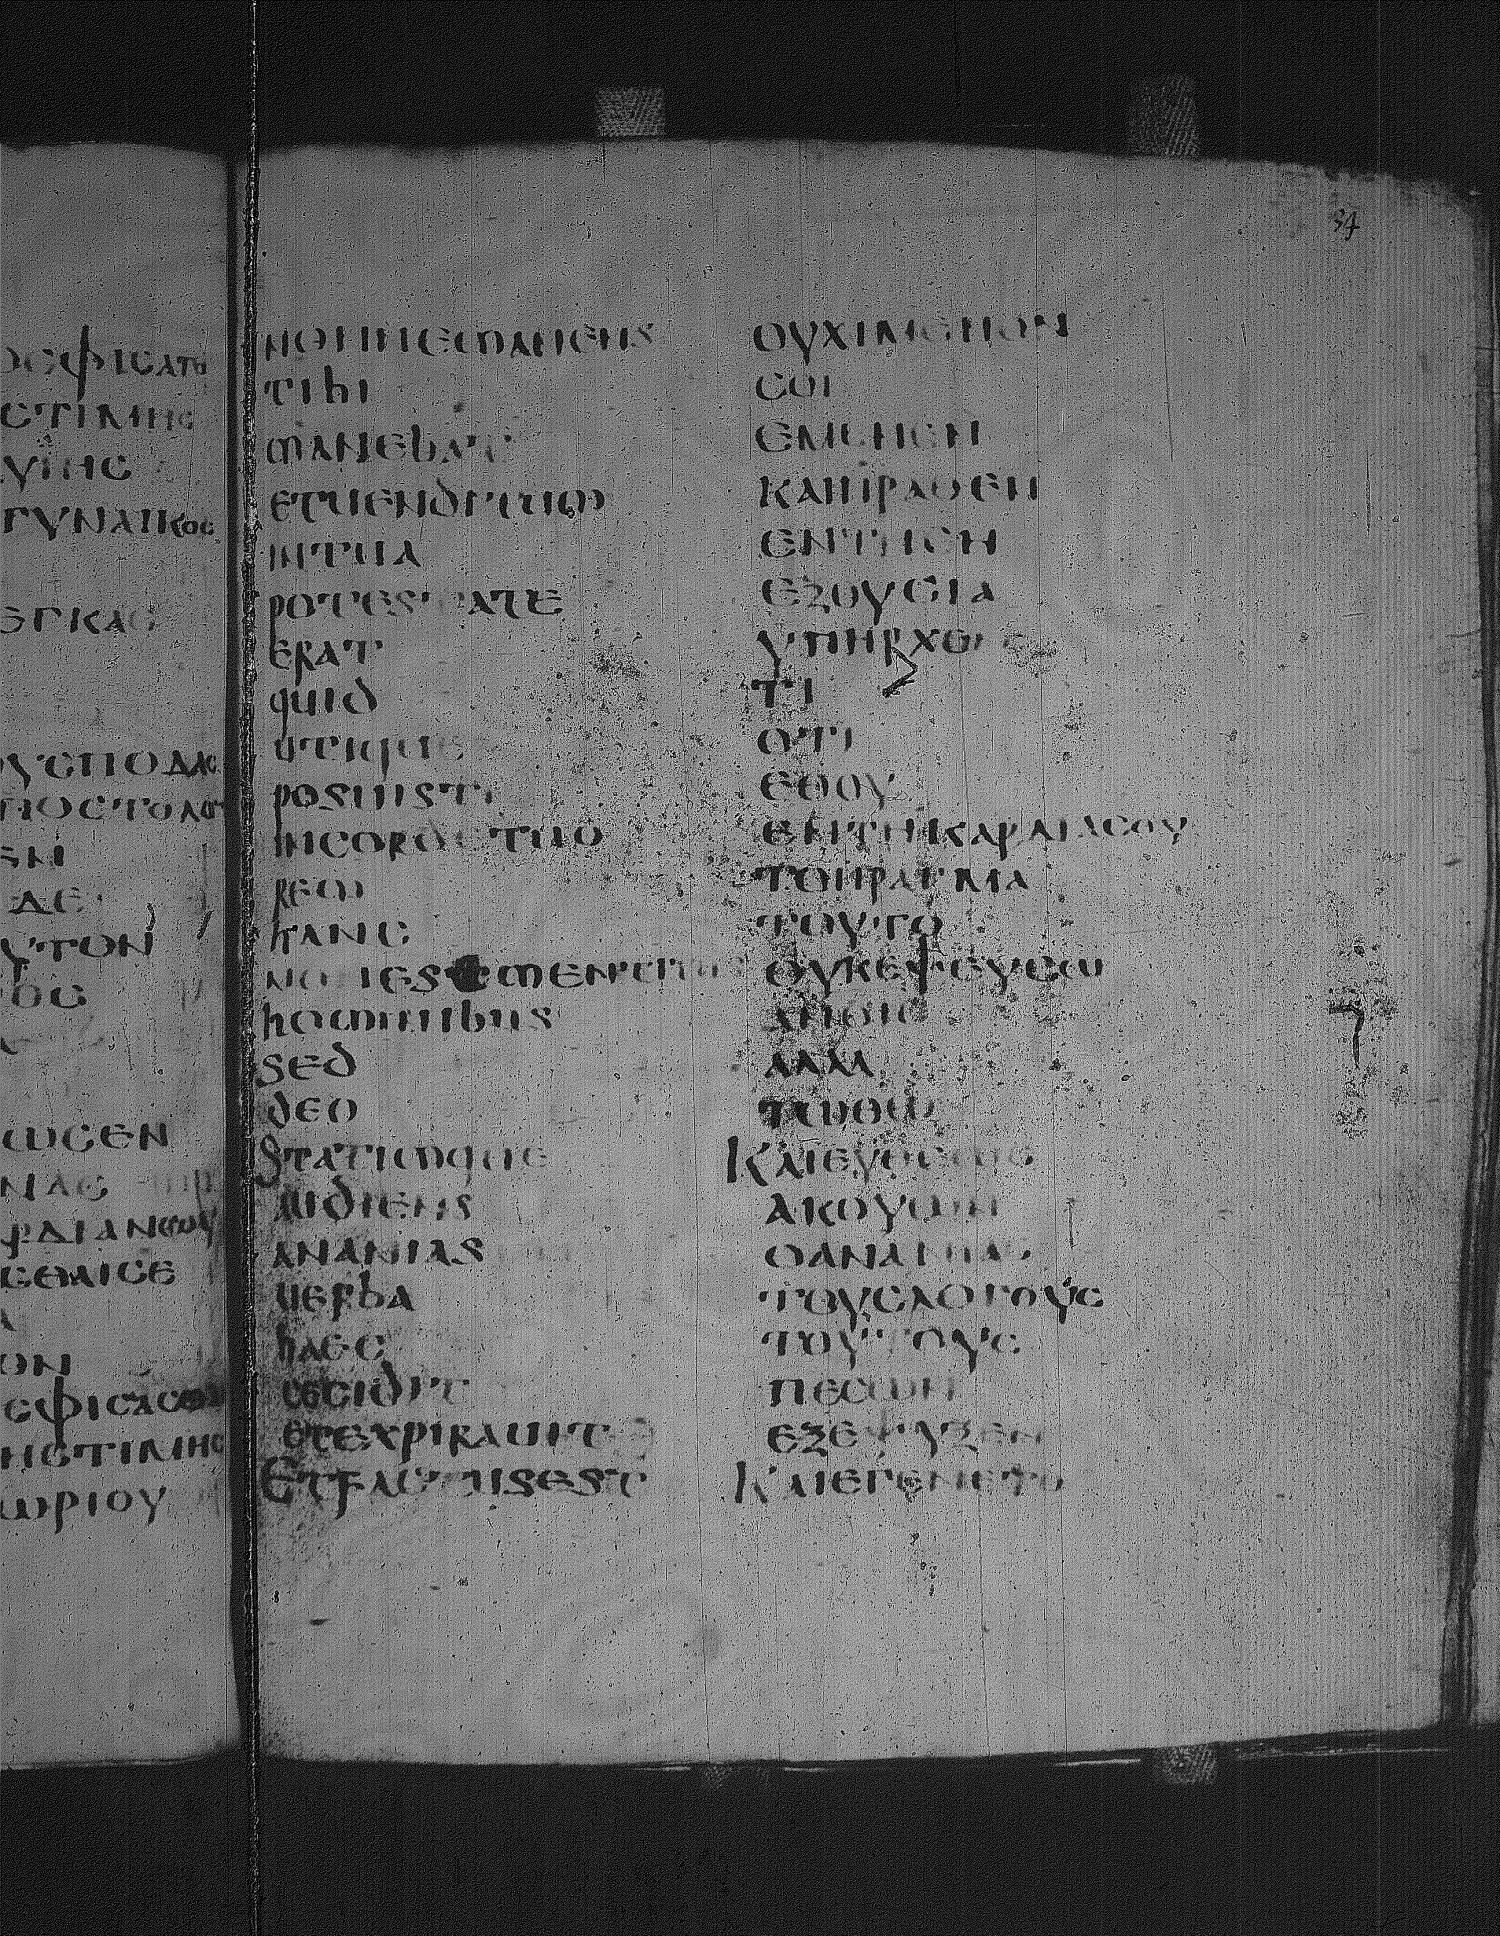 ΟϹΦΙϹΑΤΟ
ϹΤΙΜΗϹ
ΥΤΗϹ
ΓΥΝΑΙΚΟϹ
ΕΓΚΑϹ
ΟΥϹΠΟΔΑϹ
ΠΟϹΤΟΛΩ
ΕΝ
ΔΕ
ΥΤΟΝ
ΟϹ
ΩϹΕΝ
ΝΑϹ
ΡΔΙΑΝϹΟΥ
ϹΕΘΑΙϹΕ
ΟΝ
ϹΦΙϹΑϹΘΑΙ
ΗϹΤΙΜΗϹ
ΩΡΙΟΥ
34
nonnemanens
tibi
manebat
etuenditum
intua
potestate
erat
quid
utique
posuisti
incordetuo
rem
hanc
mentitus
hominibus
sed
deo
Statimque
audiens
ananias
uerba
haec
cecidit
etexpirauit
Etfactusest
ΟΥΧΙΜΕΝΟΝ
ϹΟΙ
ΕΜΕΝΕΝ
ΚΑΙΠΡΑΘΕΝ
ΕΝΤΗϹΗ
ΕΞΟΥϹΙΑ
ΥΠΗΡΧΕΝ
ΤΙ
ΟΤΙ
ΕΘΟΥ
ΕΝΤΗΚΑΡΔΙΑϹΟΥ
ΤΟΠΡΑΓΜΑ
ΤΟΥΤΟ
ΟΥΚΕΨΕΥϹΩ
ΑΝΟΙϹ
ΑΛΛΑ
ΤΩΘΩ
ΚΑΙΕΥΘΕΩϹ
ΑΚΟΥΩΝ
ΟΑΝΑΝΙΑϹ
ΤΟΥϹΛΟΓΟΥϹ
ΤΟΥΤΟΥϹ
ΠΕϹΩΝ
ΕΞΕΨΥΞΕΝ
ΚΑΙΕΓΕΝΕΤΟ